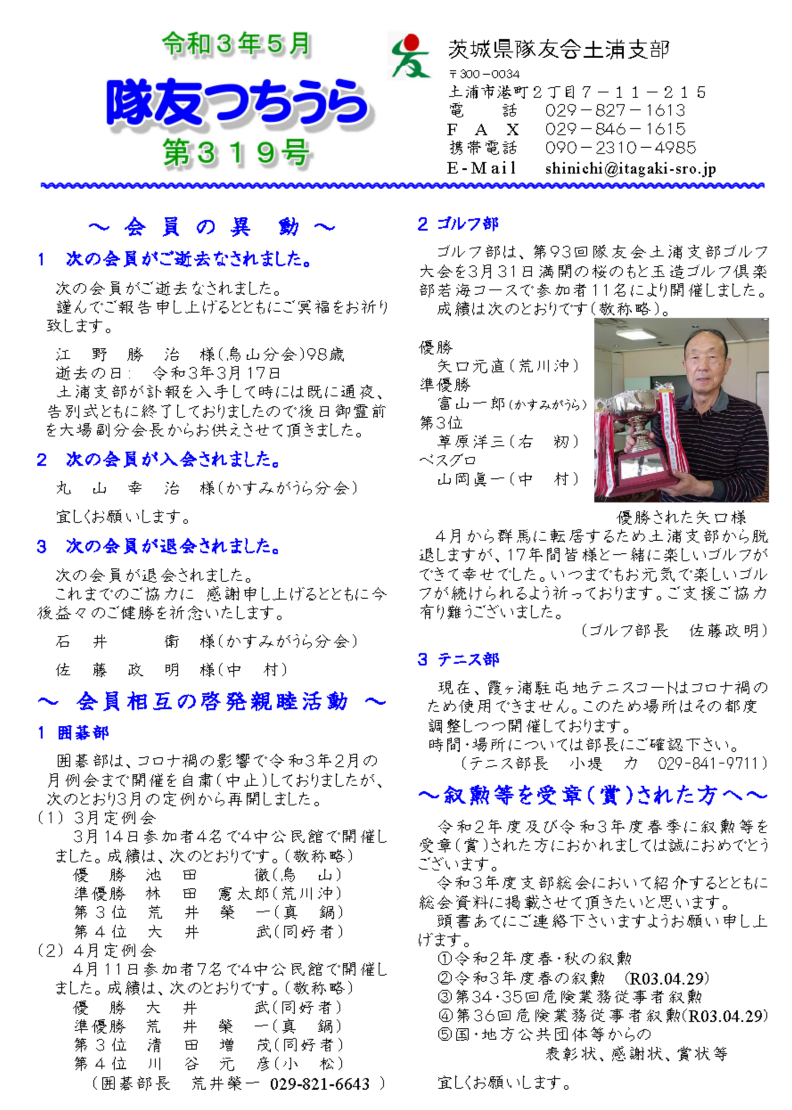 令和３年５月
隊友つちうら
第３１９号
茨城県隊友会土浦支部
〒300－0034
土浦市港町２丁目７－１１－２１５
電　　話　029－827－1613
Ｆ　Ａ　Ｘ　029－846－1615
携帯電話　090－2310－4985
E-Mail　shinichi@itagaki-sro.jp
～ 会 員 の 異　動 ～
1　次の会員がご逝去なされました。
次の会員がご逝去なされました。
謹んでご報告申し上げるとともにご冥福をお祈り
致します。
江　野　勝　治　様(烏山分会)98歳
逝去の日：　令和3年3月17日
土浦支部が訃報を入手して時には既に通夜、
告別式ともに終了しておりましたので後日御霊前
を大場副分会長からお供えさせて頂きました。
2　次の会員が入会されました。
丸　山　幸　治　様(かすみがうら分会)
宜しくお願いします。
3　次の会員が退会されました。
次の会員が退会されました。
これまでのご協力に 感謝申し上げるとともに今
後益々のご健勝を祈念いたします。
石　井　　　衛　様(かすみがうら分会)
佐　藤　政　明　様(中　村)
～ 会員相互の啓発親睦活動 ～
1 囲碁部
囲碁部は、コロナ禍の影響で令和3年2月の
月例会まで開催を自粛(中止)しておりましたが、
次のとおり3月の定例から再開しました。
(1) 3月定例会
3月14日参加者4名で4中公民館で開催し
ました。成績は、次のとおりです。(敬称略)
優　勝　池　田　　　徹(烏　山)
準優勝　林　田　憲太郎(荒川沖)
第３位　荒　井　榮　一(真　鍋)
第４位　大　井　　　武(同好者)
(2) 4月定例会
4月11日参加者7名で4中公民館で開催し
ました。成績は、次のとおりです。(敬称略)
優　勝　大　井　　　武(同好者)
準優勝　荒　井　榮　一(真　鍋)
第３位　清　田　増　茂(同好者)
第４位　川　谷　元　彦(小　松)
(囲碁部長　荒井榮一 029-821-6643 )
2 ゴルフ部
ゴルフ部は、第93回隊友会土浦支部ゴルフ
大会を3月31日満開の桜のもと玉造ゴルフ倶楽
部若海コースで参加者11名により開催しました。
成績は次のとおりです(敬称略)。
優勝
矢口元直(荒川沖)
準優勝
富山一郎(かすみがうら)
第3位
草原洋三(右　籾)
ベスグロ
山岡眞一(中　村)
優勝された矢口様
4月から群馬に転居するため土浦支部から脱
退しますが、17年間皆様と一緒に楽しいゴルフが
できて幸せでした。いつまでもお元気で楽しいゴル
フが続けられるよう祈っております。ご支援ご協力
有り難うございました。
(ゴルフ部長　佐藤政明)
3 テニス部
現在、霞ヶ浦駐屯地テニスコートはコロナ禍の
ため使用できません。このため場所はその都度
調整しつつ開催しております。
時間・場所については部長にご確認下さい。
(テニス部長　小堤　力　029-841-9711)
～叙勲等を受章(賞)された方へ～
令和2年度及び令和3年度春季に叙勲等を
受章(賞)された方におかれましては誠におめでとう
ございます。
令和3年度支部総会において紹介するとともに
総会資料に掲載させて頂きたいと思います。
頭書あてにご連絡下さいますようお願い申し上
げます。
①令和2年度春・秋の叙勲
②令和3年度春の叙勲　(R03.04.29)
③第34・35回危険業務従事者叙勲
④第36回危険業務従事者叙勲(R03.04.29)
⑤国・地方公共団体等からの
表彰状、感謝状、賞状等
宜しくお願いします。